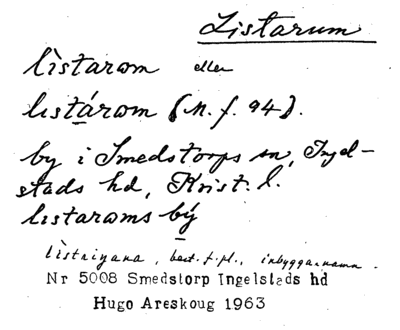 Listarum
lìstarωm eller
lιstárωm (M. f. 94).
by i Smedstorps sn, Ingel-
stads hd, Krist. l.
lιstarωms bý
lìstniŋana, best. f. pl., inbyggarnamn.
Nr 5008 Smedstorp Ingelstads hd
Hugo Areskoug 1963